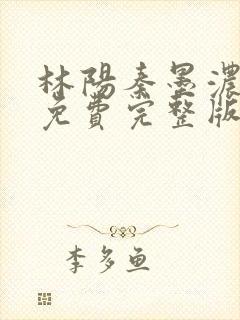 林陽秦墨濃
免費完整版
李多鱼